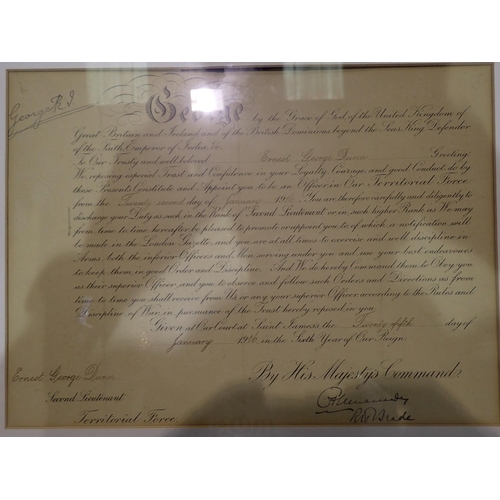 George R I
George by the Grace of God, of the United Kingdom of
Great Britain and Ireland and of the British Dominions beyond the Seas, King, Defender
of the Faith, Emperor of India, &c.
To Our Trusty and well beloved Ernest George Dunn Greeting:
We reposing especial Trust and Confidence in your Loyalty, Courage, and good Conduct, do by
these Presents Constitute and Appoint you to be an Officer in Our Territorial Force
from the Twenty second day of January 1916. You are therefore carefully and diligently to
discharge your Duty as such in the Rank of Second Lieutenant or in such higher Rank as We may
from time to time hereafter be pleased to promote or appoint you to, of which a notification will
be made in the London Gazette, and you are at all times to exercise and well discipline in
Arms both the inferior Officers and Men serving under you and use your best endeavours
to keep them in good Order and Discipline. And We do hereby Command them to Obey you
as their superior Officer, and you to observe and follow such Orders and Directions as from
time to time you shall receive from Us, or any your superior Officer, according to the Rules and
Discipline of War, in pursuance of the Trust hereby reposed in you.
Given at Our Court at Saint James's the Twenty fifth day of
January 1916 in the Sixth Year of Our Reign.
By His Majesty's Command,
Ernest George Dunn
Second Lieutenant
Territorial Force.
R H Brade